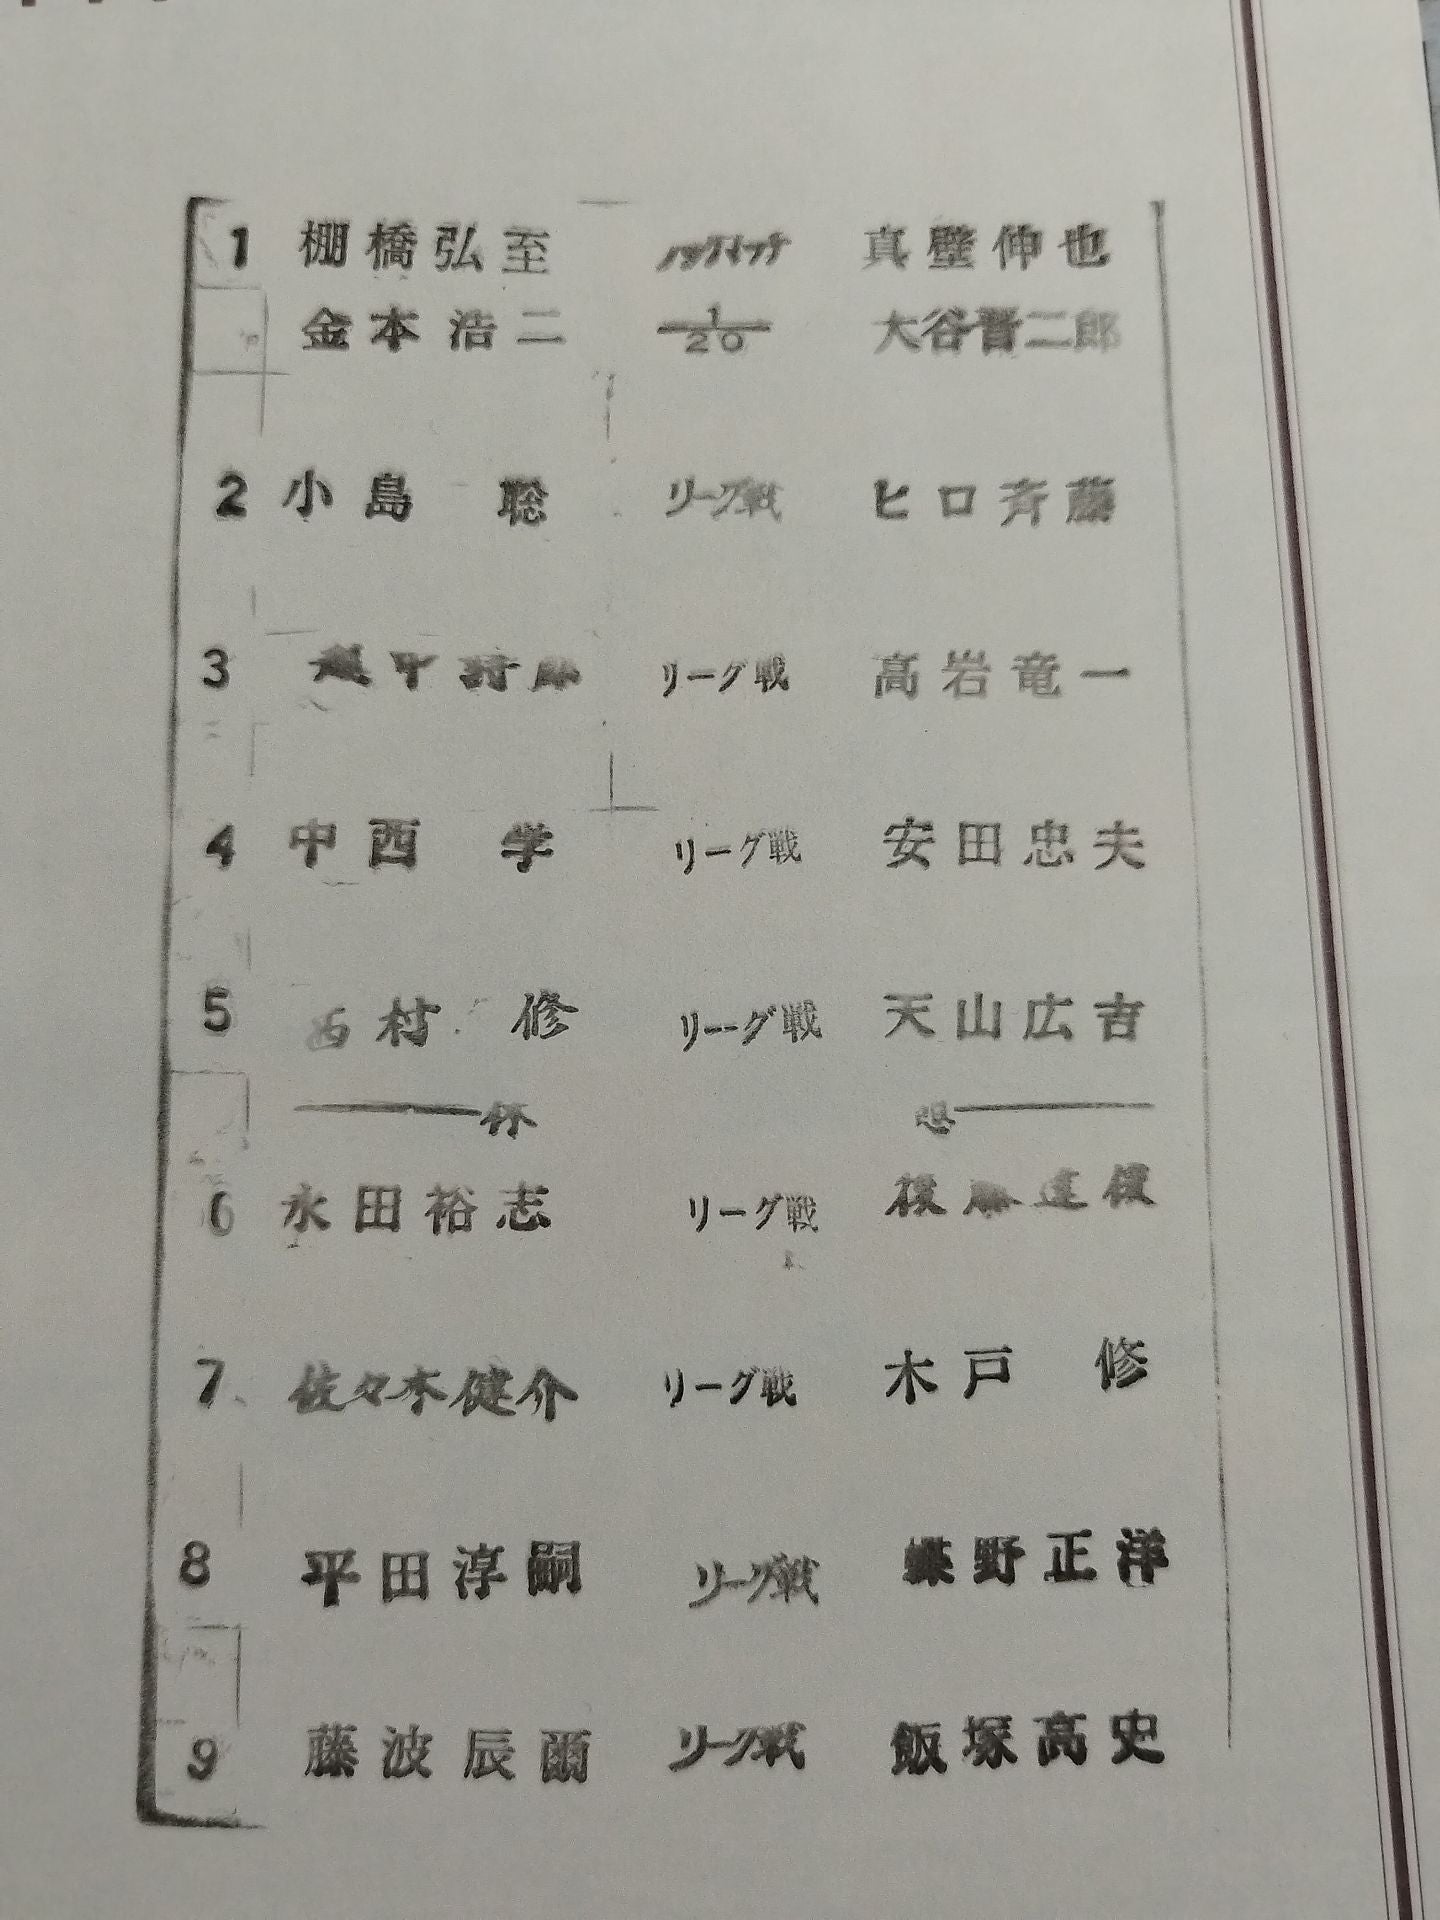 1 棚橋弘至 タッグマッチ 真壁伸也
金本浩二 1/20 大谷晋二郎
2 小島 聡 リーグ戦 ヒロ斉藤
3 リーグ戦 高岩竜一
4 中西 学 リーグ戦 安田忠夫
5 西村 修 リーグ戦 天山広吉
休 憩
6 永田裕志 リーグ戦 後藤達俊
7 佐々木健介 リーグ戦 木戸 修
8 平田淳嗣 リーグ戦 蝶野正洋
9 藤波辰爾 リーグ戦 飯塚高史